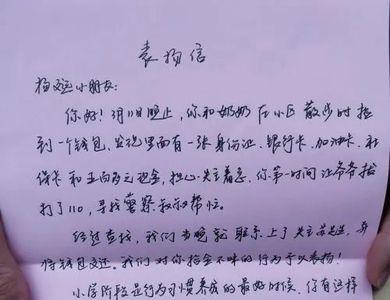 表扬信
杨文远小朋友:
你好! 3月11日晚上,你和奶奶在小区散步时捡
到一个钱包,发现里面有一张身份证、银行卡、加油卡、社
保卡和五百多元现金,担心失主着急,你第一时间让爷爷拨
打了110,寻找警察叔叔帮忙。
经过查找,我们当晚就联系上了失主,并
将钱包交还。我们对你拾金不昧的行为予以表扬!
小学阶段是行为习惯养成的最好时候,你有这样